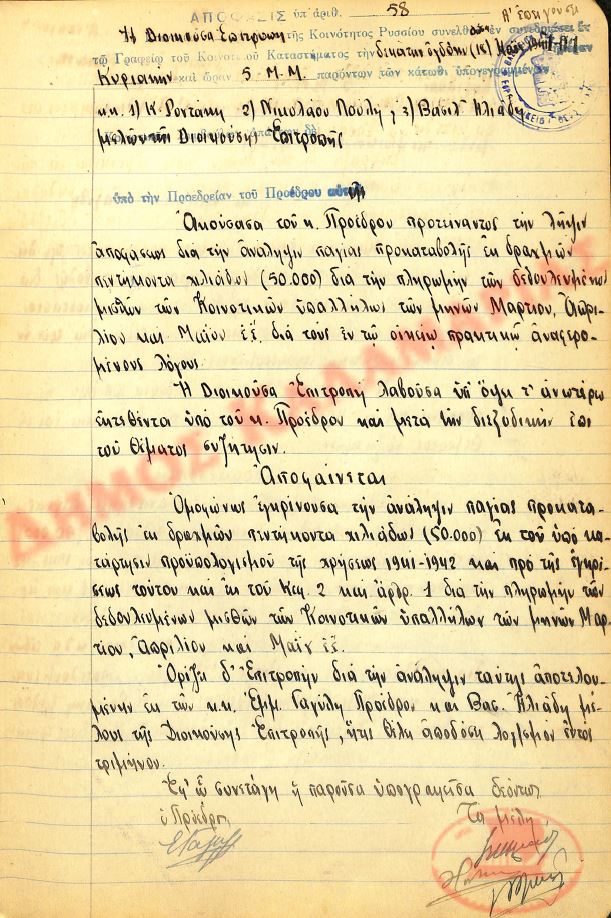 ΑΠΟΦΑΣΙΣ ὑπ' ἀριθ. 58
Ἡ Διοικοῦσα Ἐπιτροπὴ τῆς Κοινότητος Ρυσσίου συνελθοῦσα ἐν συνεδριάσει ἐν
τῷ Γραφείῳ τοῦ Κοινοτικοῦ Καταστήματος τὴν δεκάτην ὀγδόην (18) Μαΐου 1941
Κυριακὴν καὶ ὥραν 5 Μ.Μ. παρόντων τῶν κάτωθι ὑπογεγραμμένων
κ.κ. 1) Κ. Ροντάκη 2) Νικολάου Πουλῆ, 3) Βασιλ. Ἠλιάδη
μελῶν τῆς Διοικούσης Ἐπιτροπῆς
ὑπὸ τὴν Προεδρείαν τοῦ Προέδρου αὐτῆς
Ἀκούσασα τοῦ κ. Προέδρου προτείναντος τὴν λῆψιν
ἀποφάσεως διὰ τὴν ἀνάληψιν παγίας προκαταβολῆς ἐκ δραχμῶν
πεντήκοντα χιλιάδων (50.000) διὰ τὴν πληρωμὴν τῶν δεδουλευμένων
μισθῶν τῶν Κοινοτικῶν ὑπαλλήλων τῶν μηνῶν Μαρτίου, Ἀπρι-
λίου καὶ Μαΐου ἐ.ἔ. διὰ τοὺς ἐν τῷ οἰκείῳ πρακτικῷ ἀναφερο-
μένους λόγους.
Ἡ Διοικοῦσα Ἐπιτροπὴ λαβοῦσα ὑπ' ὄψιν τ' ἀνωτέρω
ἐκτεθέντα ὑπὸ τοῦ κ. Προέδρου καὶ μετὰ τὴν διεξοδικὴν ἐπὶ
τοῦ θέματος συζήτησιν.
Ἀποφαίνεται
Ὁμοφώνως ἐγκρίνουσα τὴν ἀνάληψιν παγίας προκατα-
βολῆς ἐκ δραχμῶν πεντήκοντα χιλιάδων (50.000) ἐκ τοῦ ὑπὸ κα-
τάρτησιν προϋπολογισμοῦ τῆς χρήσεως 1941-1942 καὶ πρὸ τῆς ἐγκρί-
σεως τούτου καὶ ἐκ τοῦ Κεφ. 2 καὶ ἄρθρ. 1 διὰ τὴν πληρωμὴν τῶν
δεδουλευμένων μισθῶν τῶν Κοινοτικῶν ὑπαλλήλων τῶν μηνῶν Μαρ-
τίου, Ἀπριλίου καὶ Μαΐου ἐ.ἔ.
Ὁρίζει δ' Ἐπιτροπὴν διὰ τὴν ἀνάληψιν ταύτης ἀποτελου-
μένην ἐκ τῶν κ.κ. Ἐμμ. Γαγύλη Προέδρου καὶ Βασ. Ἠλιάδη μέ-
λους τῆς Διοικούσης Ἐπιτροπῆς, ἥτις θέλει ἀποδόσει λογ/σμὸν ἐντὸς
τριμήνου.
Ἐφ' ᾧ συνετάγη ἡ παροῦσα ὑπογραφεῖσα δεόντως
ὁ Πρόεδρος Τὰ μέλη
ΔΗΜΟΣ ΚΑΛΑΜΑΡΙΑΣ